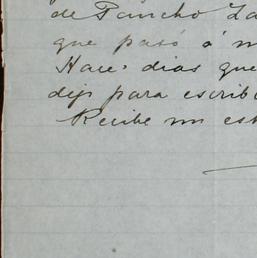 de Pancho La
que pasó á m
Hace dias que
dejo para escrib
Recibe un est